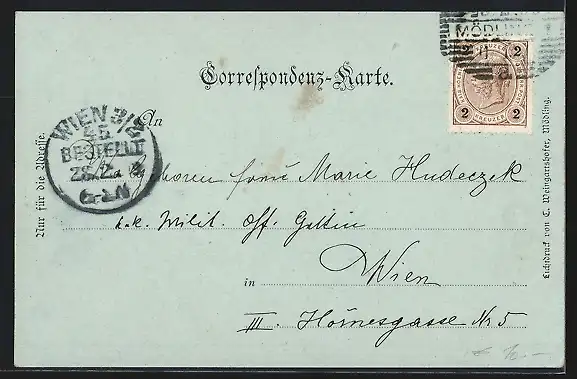 MÖDLING
Correspondenz-Karte.
2 KREUZER 2
2 KREUZER 2
WIEN 3/2
BESTELLT
An
Frau Marie Hudeczek
k.k. Milit. Off. Gattin
Wien
in
III. Hörnesgasse Nr. 5
Nur für die Adresse.
Lichtdruck von C. Weingartshofer, Mödling.